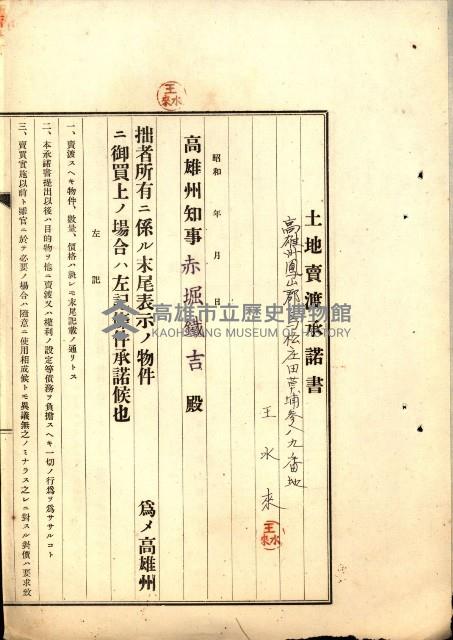 土地賣渡承諾書
高雄州鳳山郡鳥松庄田草埔參八九番地
王水來
王水來
昭和 年 月 日
高雄州知事 赤堀鐵吉 殿
拙者所有ニ係ル末尾表示ノ物件 為メ高雄州
ニ御買上ノ場合ハ左記條件承諾候也
左記
一、賣渡スヘキ物件、數量、價格ハ總レモ末尾記載ノ通リトス
二、本承諾書提出以後ハ目的物ヲ他ニ賣渡又ハ權利ノ設定等債務ヲ負擔スヘキ一切ノ行為ヲ為ササルコト
三、賣買實施以前ト雖官ニ於テ必要ノ場合ハ隨意ニ使用相成候トモ異議無之ノミナラス之レニ對スル對價ハ要求致
王水來
高雄市立歷史博物館
KAOHSIUNG MUSEUM OF HISTORY